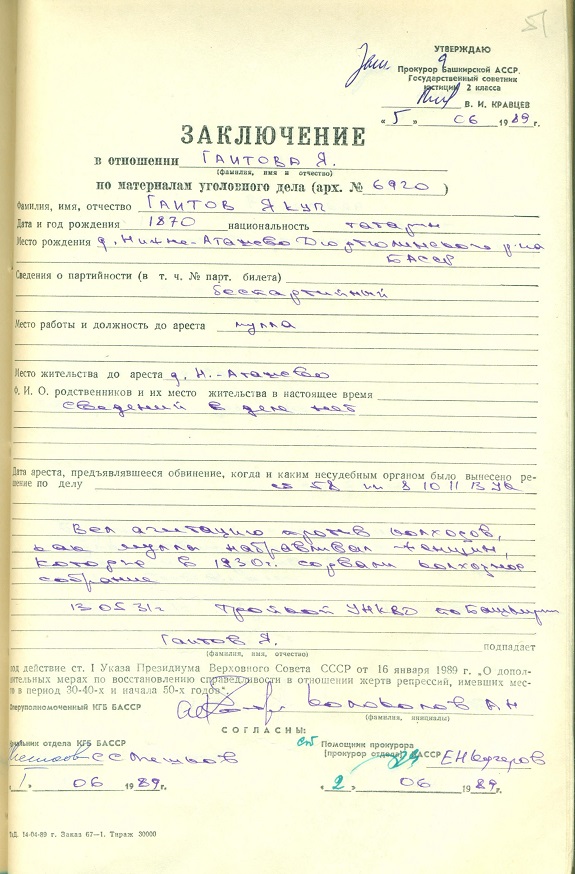 51
УТВЕРЖДАЮ
Зам
Прокурор Башкирской АССР.
Государственный советник
юстиции 2 класса
В. И. КРАВЦЕВ
« 5 » 06 1989г.
ЗАКЛЮЧЕНИЕ
в отношении ГАИТОВА Я.
(фамилия, имя и отчество)
по материалам уголовного дела (арх. № 6920 )
Фамилия, имя, отчество ГАИТОВ ЯКУП
Дата и год рождения 1870 национальность татарин
Место рождения д. Нижне-Аташево Дюртюлинского р-на
БАССР
Сведения о партийности (в т. ч. № парт. билета)
беспартийный
Место работы и должность до ареста мулла
Место жительства до ареста д. Н.-Аташево
Ф. И. О. родственников и их место жительства в настоящее время
сведений в деле нет
Дата ареста, предъявлявшееся обвинение, когда и каким несудебным органом было вынесено ре-
шение по делу ст 58 10 11 УК
Вел агитацию против колхозов,
как мулла направлял женщин,
которые в 1930г. сорвали колхозное
собрание
13 05 31г Тройкой УНКВД по Башкирии
Гаитов Я. подпадает
(фамилия, имя, отчество)
под действие ст. I Указа Президиума Верховного Совета СССР от 16 января 1989 г. „О допол-
нительных мерах по восстановлению справедливости в отношении жертв репрессий, имевших мес-
то в период 30-40-х и начала 50-х годов".
Оперуполномоченный КГБ БАССР А Н
(фамилия, инициалы)
СОГЛАСНЫ:
Начальник отдела КГБ БАССР ст Помощник прокурора
(прокурор отдела) БАССР
С С Мешков
« 1 » 06 1989г. « 2 » 06 1989г.
14-04-89 г. Заказ 67—1. Тираж 30000